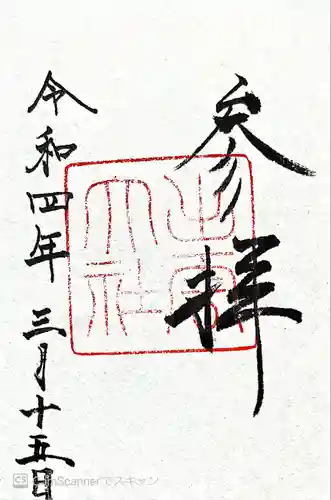 参拝
出雲
大社
令和四年三月十五日
CS CamScannerでスキャン